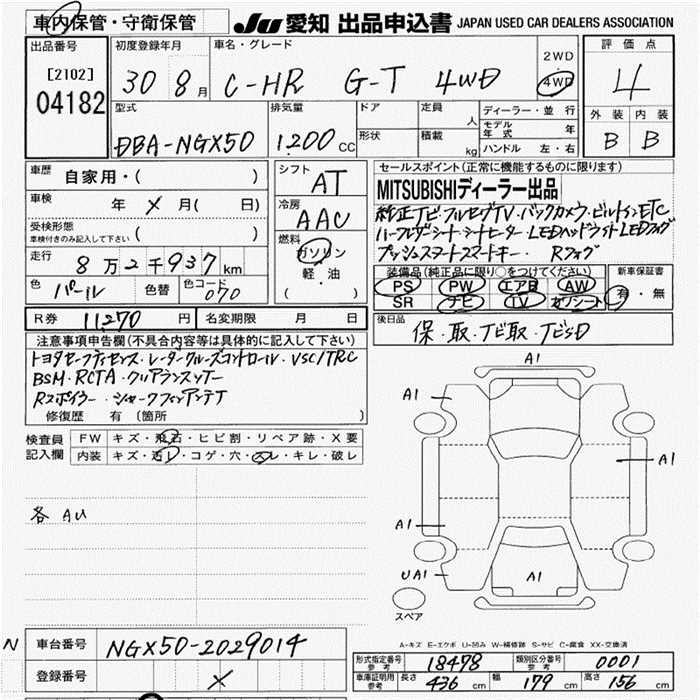 車内保管・守衛保管
JU 愛知 出品申込書 JAPAN USED CAR DEALERS ASSOCIATION
出品番号
[2102]
04182
初度登録年月
30 8月
車名・グレード
C-HR G-T 4WD
2WD
4WD
評価点
4
外装 内装
B B
型式
DBA-NGX50
排気量
1200 CC
ドア
形状
定員 人
積載 kg
ディーラー・並行
モデル年式 年
ハンドル 左・右
車歴 自家用・( )
車検 年 × 月( 日)
受検形態
車検付きのみ記入して下さい ( )
走行 8万2千937km
色 パール 色替 色コード 070
シフト AT
冷房 AAC
燃料
ガソリン
軽・油
( )
セールスポイント(正常に機能するものに限ります)
MITSUBISHIディーラー出品
純正ナビ・フルセグTV・バックカメラ・ビルトインETC
ハーフレザーシート・シートヒーター・LEDヘッドライト LEDフォグ
プッシュスタートスマートキー・ Rフォグ
装備品(純正品に限り○をつけてください)
PS PW エアB AW
SR ナビ TV カワシート
新車保証書
有・無
R券 11,270 円 名変期限 月 日
後日品
保・取・ナビ取・ナビSD
注意事項申告欄(不具合内容等は具体的に記入して下さい)
トヨタセーフティセンス・レーダークルーズコントロール・VSC/TRC
BSM・RCTA・クリアランスソナー
Rスポイラー・シャークフィンアンテナ
修復歴 有 〔箇所 〕
検査員記入欄
FW キズ・飛石・ヒビ割・リペア跡・X要
内装 キズ・汚レ・コゲ・穴・スレ・キレ・破レ
各 AU
A1
A1
A1
A1
A1
UA1
A1
スペア
A-キズ E-エクボ U-凹み W-補修跡 S-サビ C-腐食 XX-交換済
N
車台番号 NGX50-2029014
登録番号 ×
形式指定番号 参考 18478 類別区分番号 参考 0001
車庫証明用 参考 長さ 436 cm 幅 179 cm 高さ 156 cm